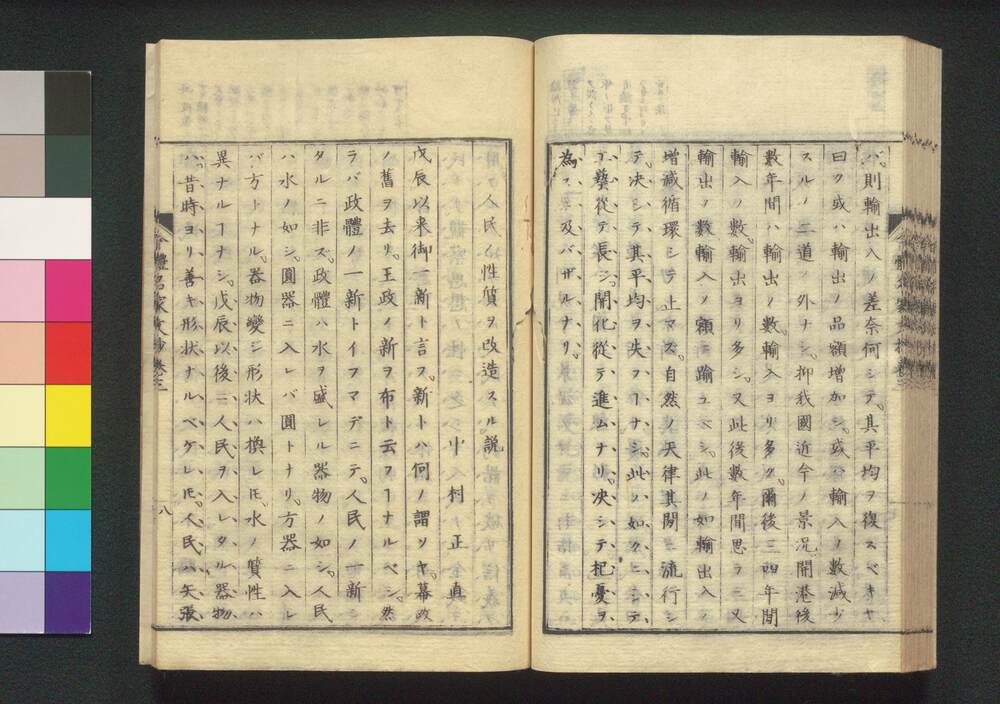 バ。則輸出入ノ差奈何シテ。其平均ヲ復スベキヤ
曰ク或ハ輸出ノ品額増加シ。或ハ輸入ノ數減少
スルノ二道ノ外ナシ。抑我國近今ノ景况。開港後
數年間ハ輸出ノ數。輸入ヨリ多ク。爾後三四年間
輸入ノ數。輸出ヨリ多シ。又此後數年間思ラニ又
輸出ノ數輸入ノ額ニ踰ユベシ。此ノ如輸出入ノ
増减循環シテ止マズ。自然ノ天律其間ニ流行シ
テ。决シテ其平均ヲ失フヿナシ。此ノ如クニシテ
工藝從テ長シ。開化從テ進ムナリ。决シテ杞憂ヲ
為スニ及バザルナリ。
人民ノ性質ヲ改造スル說
中村正直
戊辰以来御一新ト言フ。新トハ何ノ謂ソヤ。幕政
ノ舊ヲ去リ。王政ノ新ヲ布ト云フヿナルベシ。然
ラバ政體ノ一新トイフマデニテ。人民ノ一新シ
タルニ非ズ。政體ハ水ヲ盛レル器物ノ如シ。人民
ハ水ノ如シ。圓器ニ入レバ圓トナリ。方器ニ入レ
バ方トナル。器物變シ形状ハ換レ𪜈。水ノ質性ハ
異ナルヿナシ。戊辰以後ニ人民ヲ入レタル器物
ハ。昔時ヨリ善キ形状ナルベケレ𪜈。人民ハ矢張
八